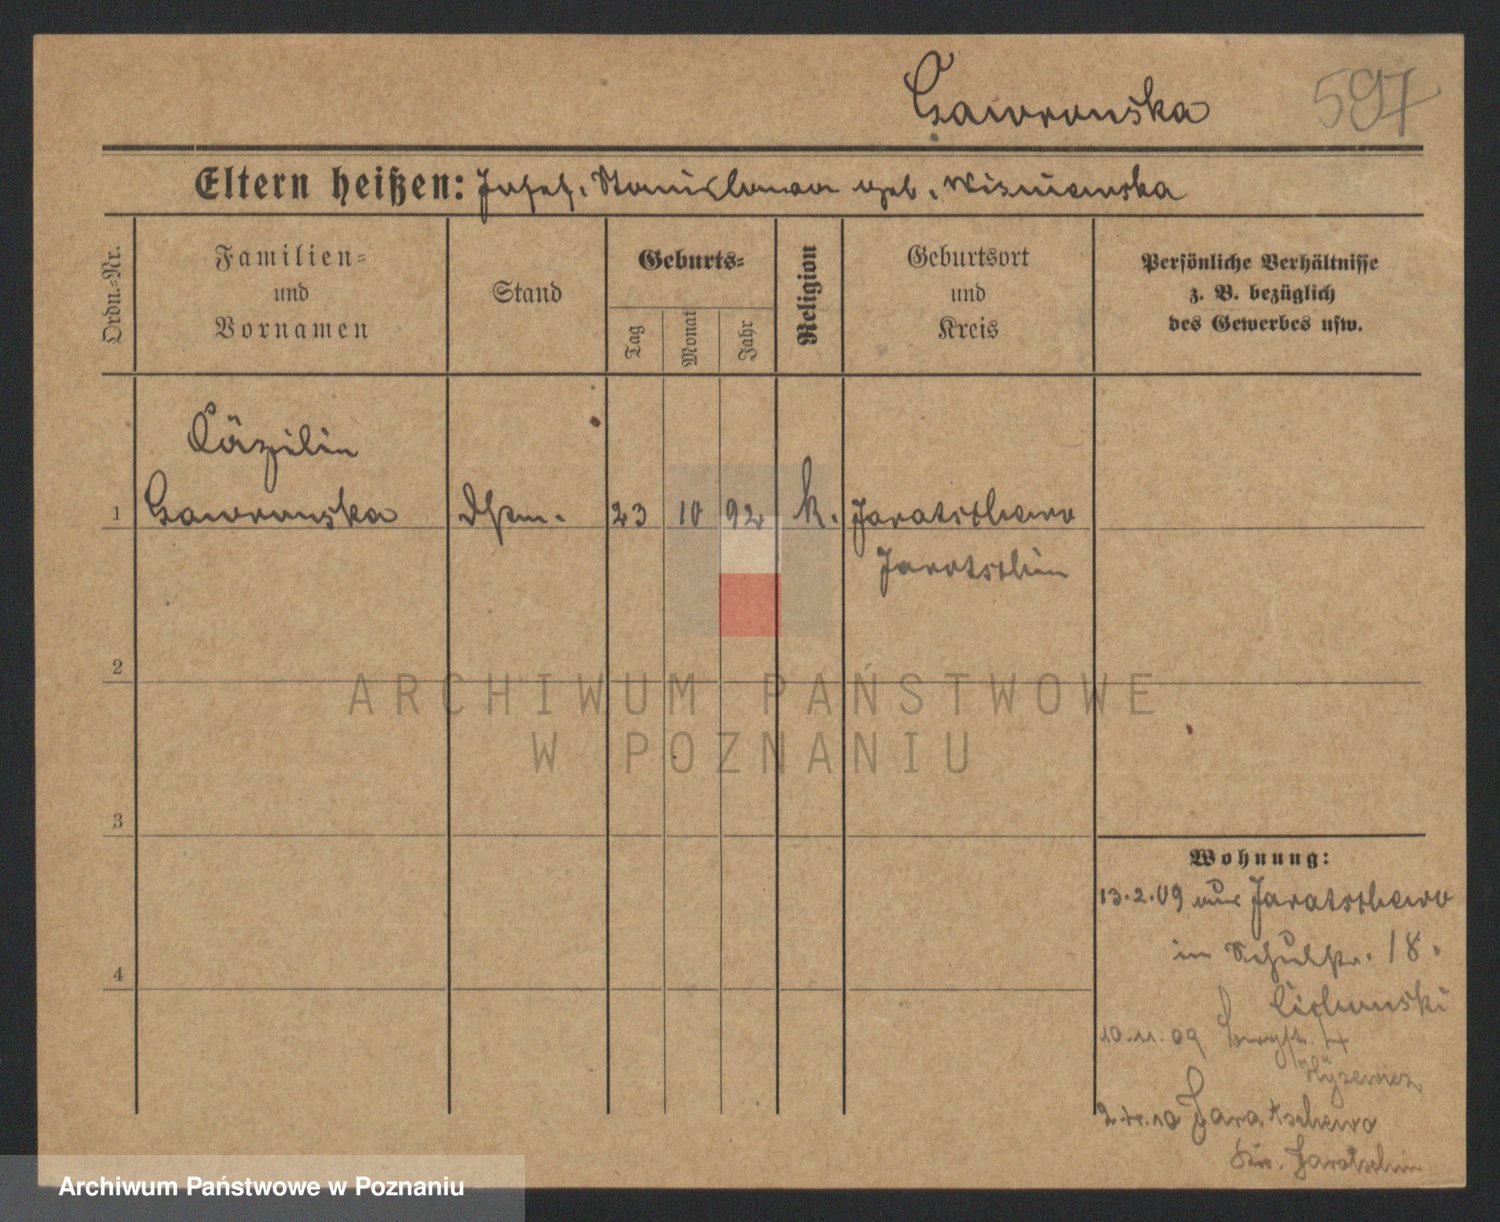 Gawronska 597
Eltern heißen: Josef. Stanislawa geb. Wisniewska
Ordn.-Nr.
Familien-
und
Vornamen
Stand
Geburts-
Tag
Monat
Jahr
Religion
Geburtsort
und
Kreis
Persönliche Verhältnisse
z. B. bezüglich
des Gewerbes usw.
Cäzilie
1 Gawronska 23 10 92 k. Jaratschewo
Jarotschin
2
ARCHIWUM PAŃSTWOWE
W POZNANIU
3
4
Wohnung:
13.2.09 aus Jaratschewo
in Schulstr. 18.
Cichowski
10.11.09 Bergstr. 4
Jaratschewo
Kr. Jarotschin
Archiwum Państwowe w Poznaniu